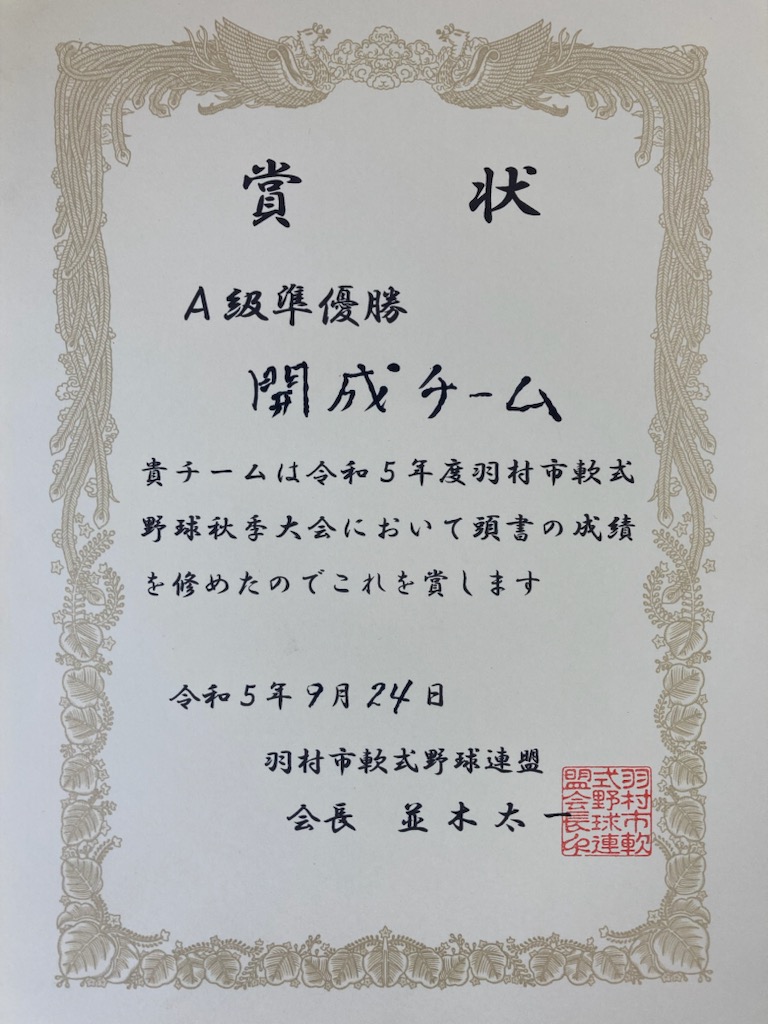 賞状
A級準優勝
開成チーム
貴チームは令和5年度羽村市軟式
野球秋季大会において頭書の成績
を修めたのでこれを賞します
令和5年9月24日
羽村市軟式野球連盟
会長 並木太一
羽村市軟
式野球連
盟会長之